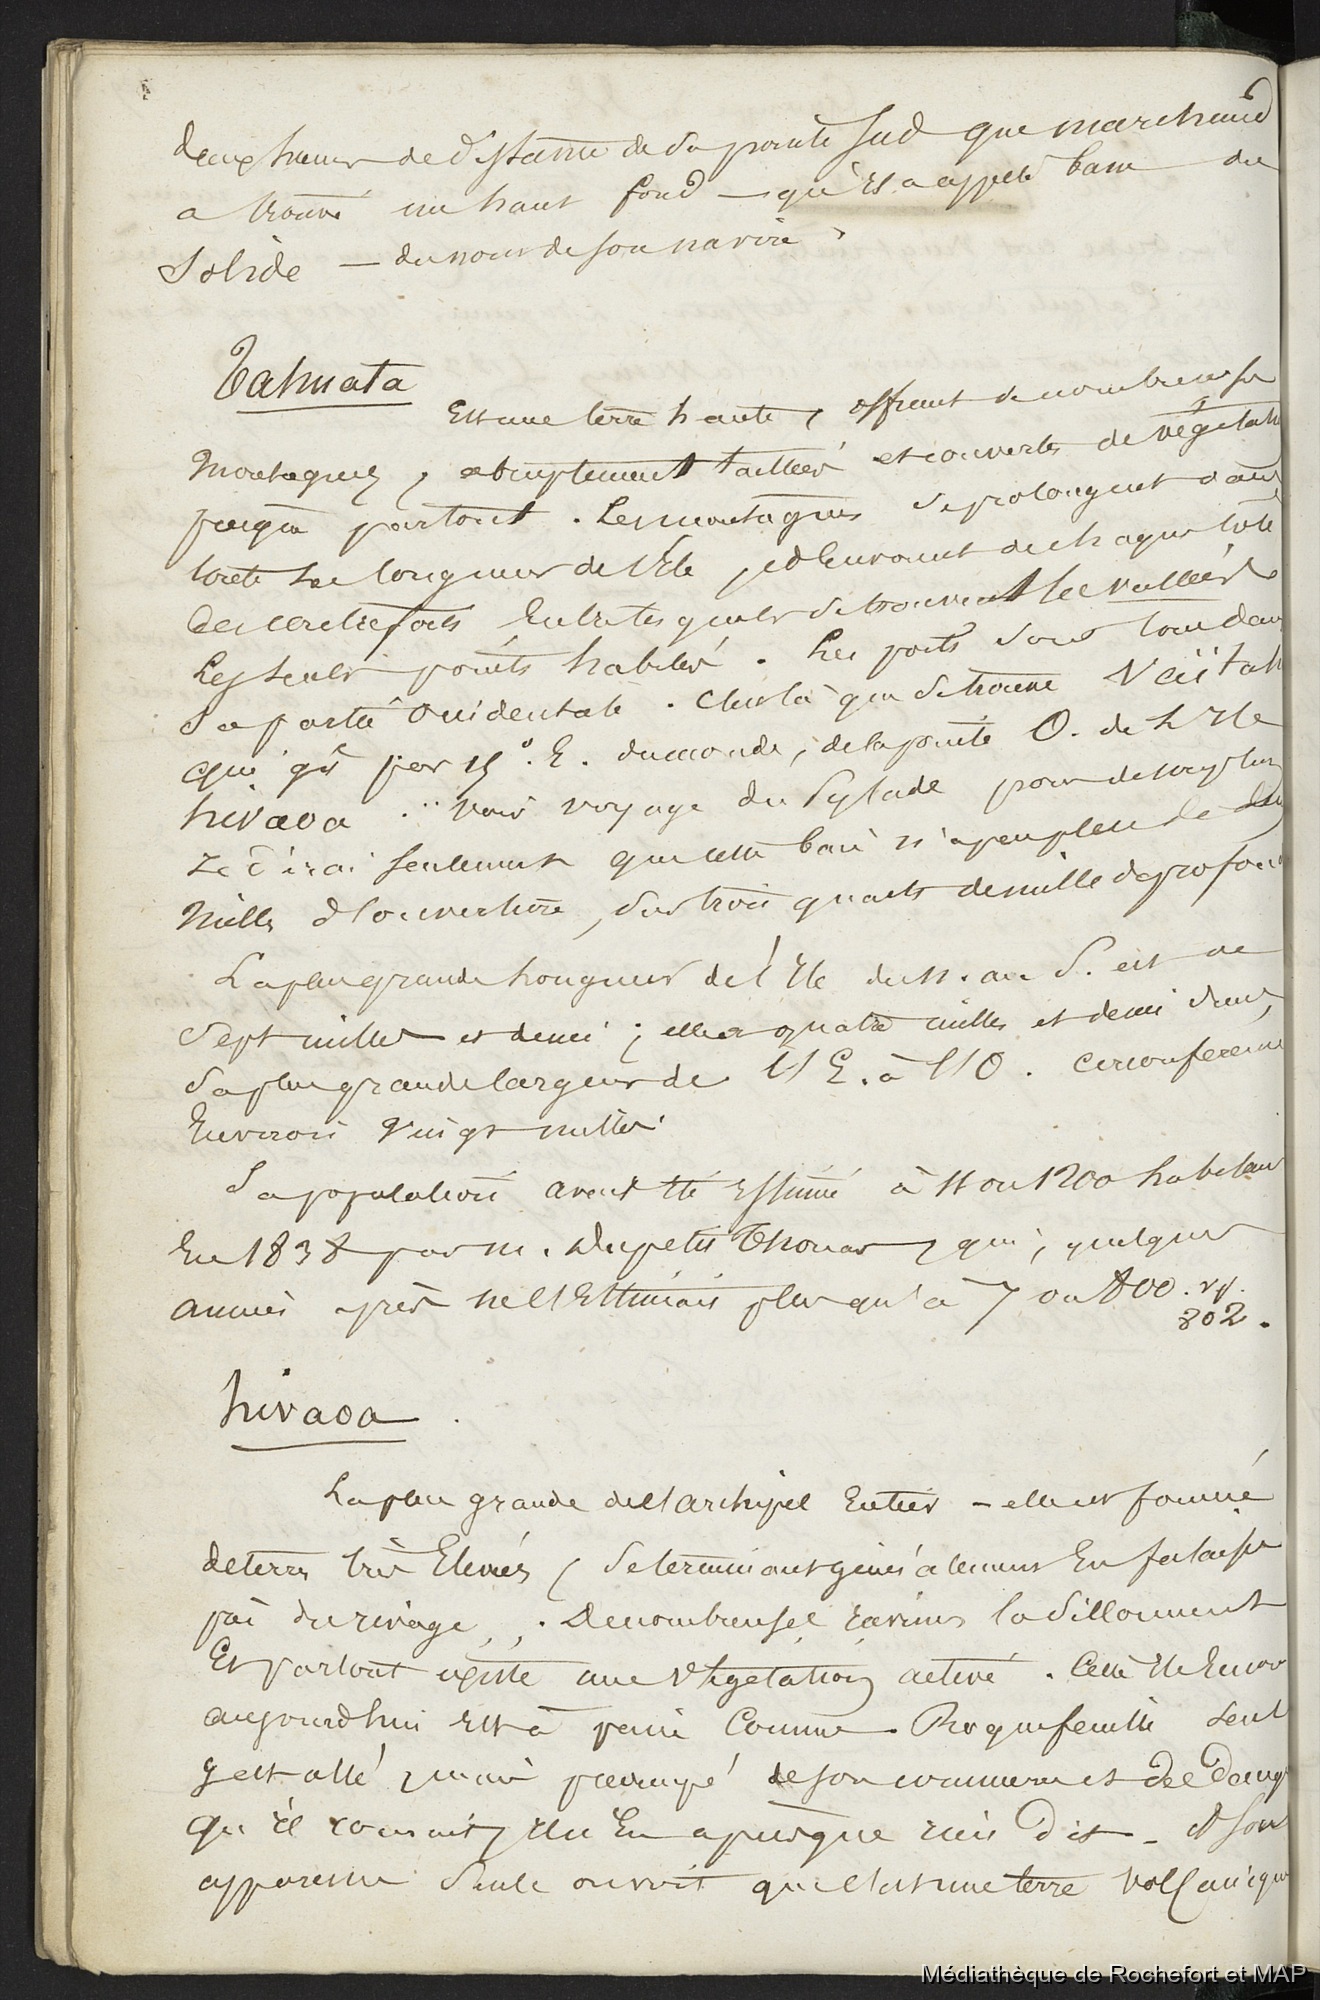 6
deux heures de distance de sa pointe sud que marchand
a trouvé un haut fond — qu'il a appellé banc du
Solide — du nom de son navire.
Tahuata
Est une terre haute, offrant de nombreuses
montagnes, abruptement taillées et couvertes de végétat
jusque partout. Les montagnes se prolongent dans
toute la longueur de l'Ile, et envoient de chaque coté
des contreforts entre lesquels se trouvent les vallées
les seuls points habités. Les ports sont tous dans
sa partie occidentale. C'est là que se trouve Vaïtah
qui gît par 15°. E. du monde, de la pointe O. de l'Ile
hivaoa. voir voyage du Pylade pour
Je dirai seulement que cette baie n'a pas plus de
mille d'ouverture, sur trois quarts de mille de profond
La plus grande longueur de l'Ile du N. au S. est de
sept milles et demi ; elle a quatre milles et demi dans
sa plus grande largeur de l'E. à l'O. circonference
Environ vingt milles.
Sa population avait été Estimé à 11 ou 1200 habitans
En 1838 par m. Dupetit Thouars, qui, quelques
années après ne l'Estimait plus qu'à 7 ou 800.
802.
hivaoa.
La plus grande de l'archipel Entier — elle est formée
de terres très Elevées, se terminant généralement En falaises
près du rivage. De nombreuses ravines la sillonnent
Et partout existe une végétation active. Cette Ile Encor
aujourd'hui est à peine connue. Roquefeuille seul
y est allé, mais préocupé de son commerce et des dang
qu'il courait, il n'En a presque rien dit. A son
apparence seule on voit que c'est une terre volcanique
Médiathèque de Rochefort et MAP